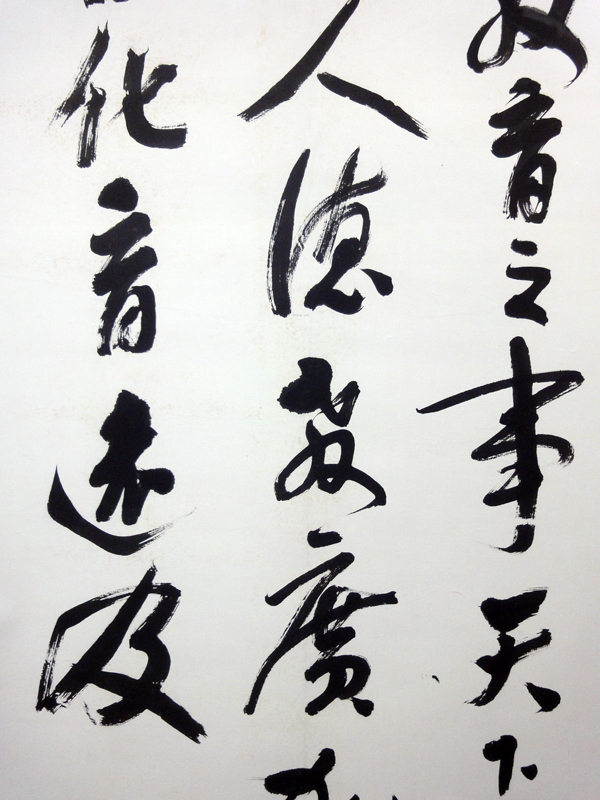 教育之事天下
人德教廣
化育遠及